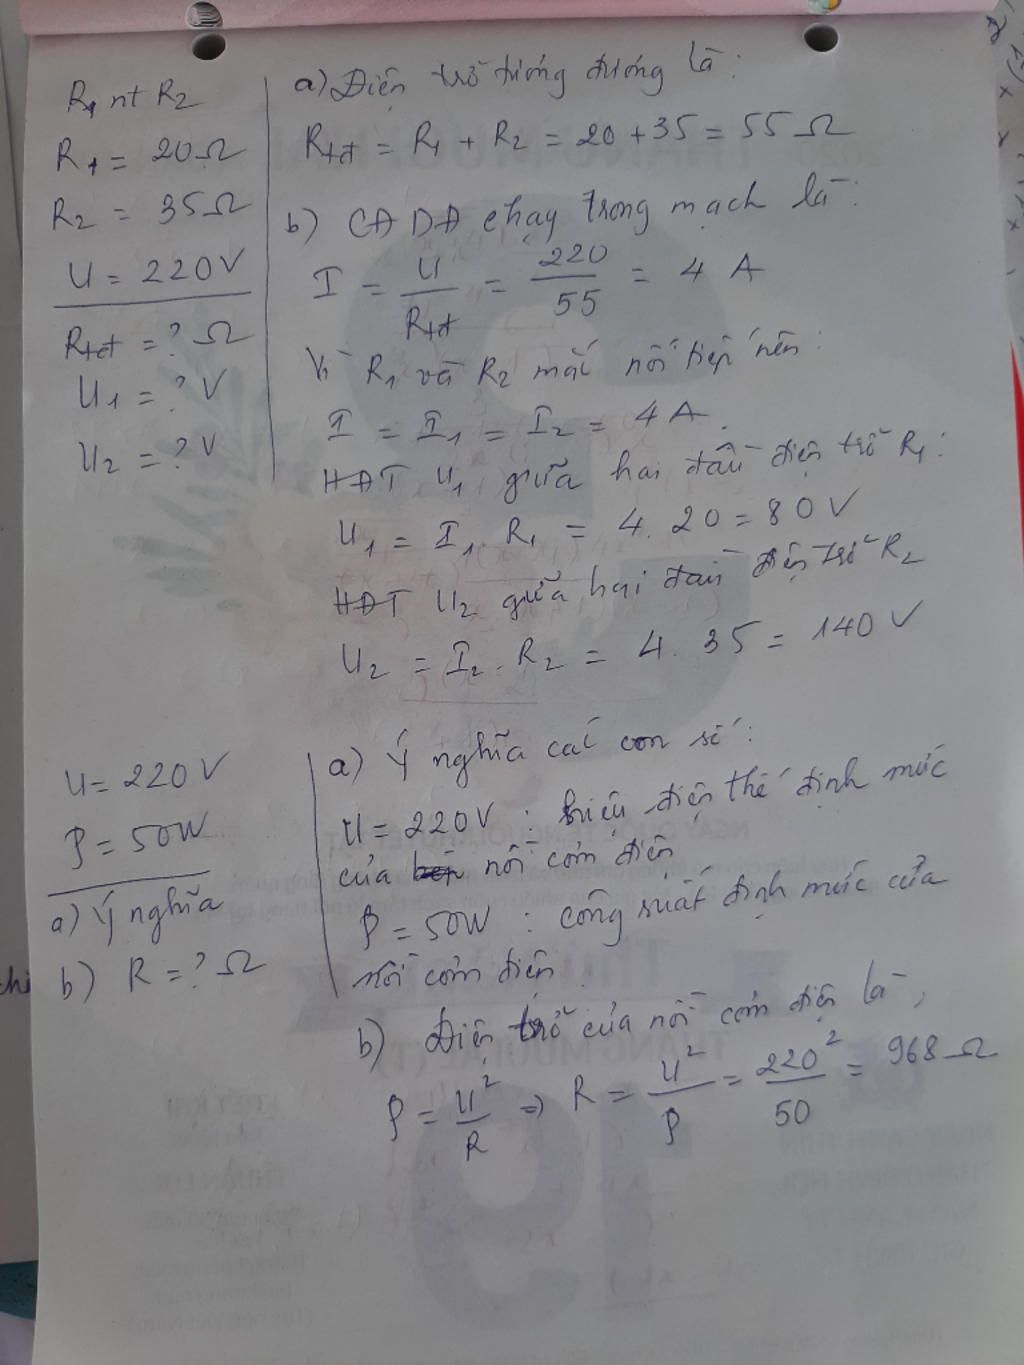 R1 nt R2
R1 = 20Ω
R2 = 35Ω
U = 220V
Rtđ = ? Ω
U1 = ? V
U2 = ? V
a) Điện trở tương đương là:
Rtđ = R1 + R2 = 20 + 35 = 55 Ω
b) CĐDĐ chạy trong mạch là:
I = U/Rtđ = 220/55 = 4 A
Vì R1 và R2 mắc nối tiếp nên:
I = I1 = I2 = 4 A.
HĐT U1 giữa hai đầu điện trở R1:
U1 = I1. R1 = 4. 20 = 80 V
HĐT U2 giữa hai đầu điện trở R2
U2 = I2. R2 = 4. 35 = 140 V
U = 220 V
P = 50W
a) Ý nghĩa
b) R = ? Ω
a) Ý nghĩa các con số:
U = 220V : hiệu điện thế định mức
của nồi cơm điện
P = 50W : công suất định mức của
nồi cơm điện.
b) Điện trở của nồi cơm điện là,
P = U²/R => R = U²/P = 220²/50 = 968 Ω